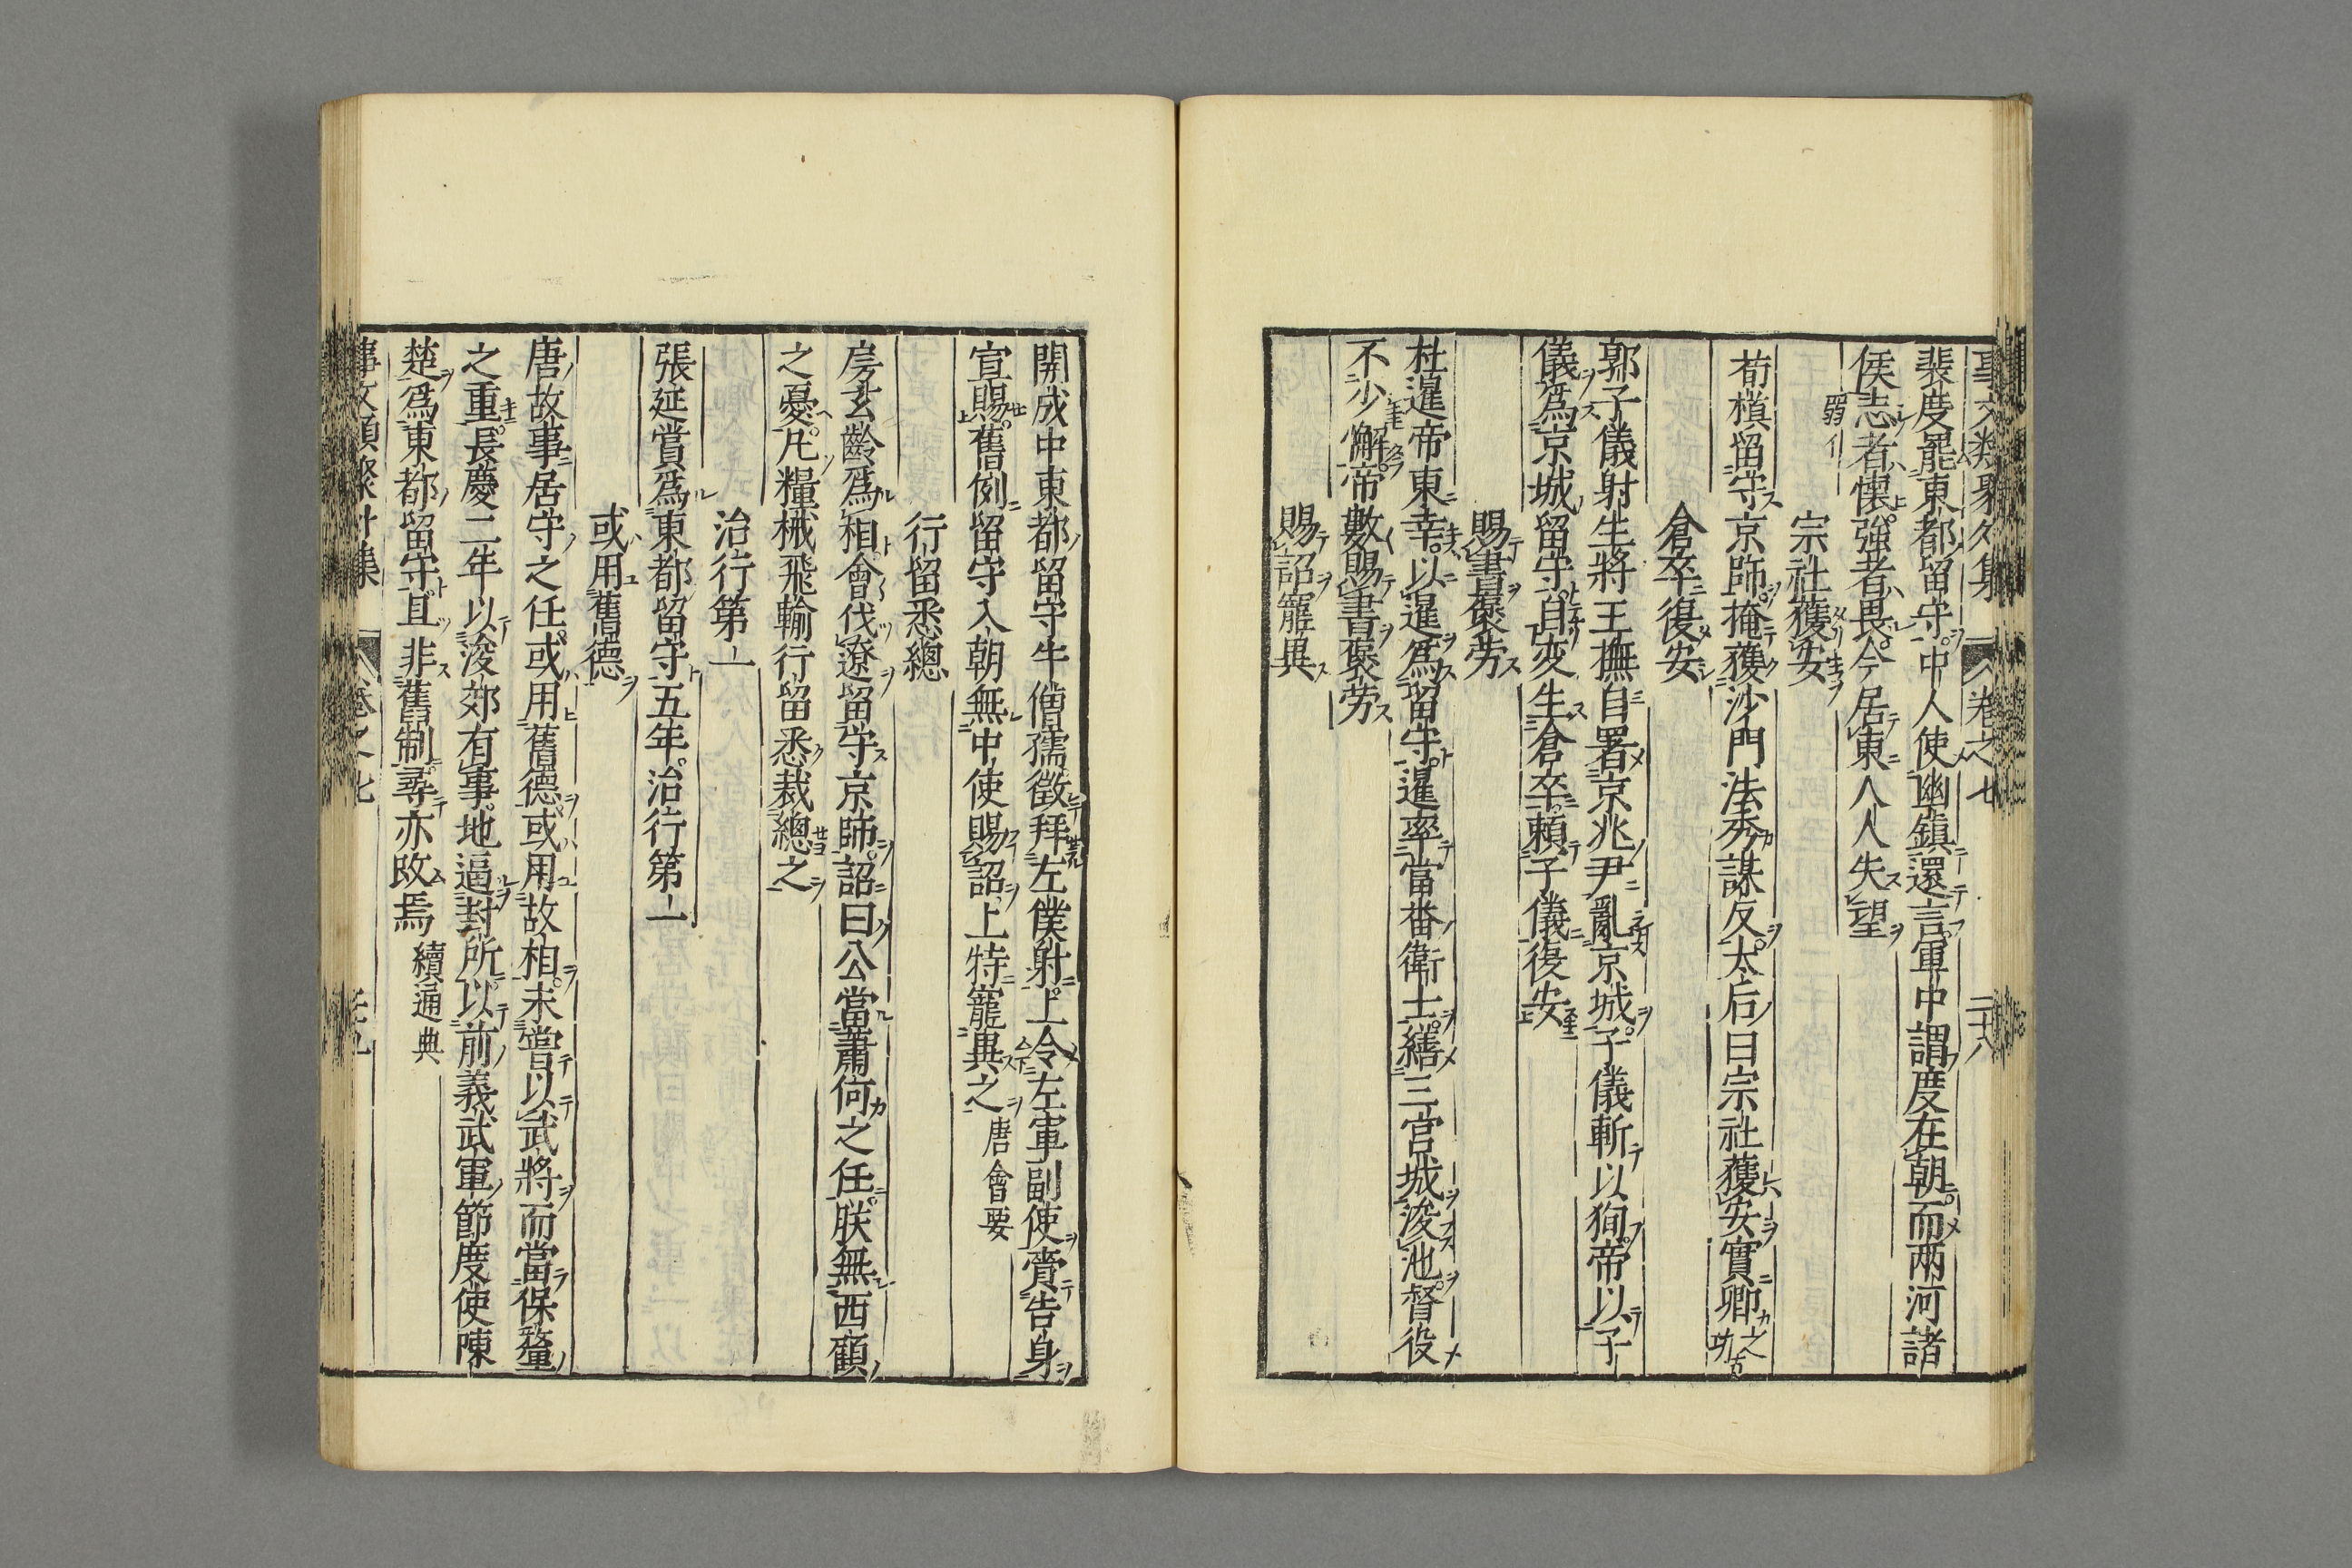 事文類聚外集 卷之七 二十八
裴度罷東都留守中人使幽鎮還言軍中謂度在朝而兩河諸
侯志者懷強者畏今居東人人失望
弱イ
宗社獲安
荀樌留守京師掩獲沙門法秀謀反太后曰宗社獲安實卿之功
倉卒復安
郭子儀射生將王撫自署京兆尹亂京城子儀斬以狥帝以子
儀爲京城留守自变生倉卒頼子儀復安
賜書褒勞
杜暹帝東幸以暹爲留守暹率當番衛士繕三宮城浚池督役
不少懈帝數賜書褒勞
賜詔寵異
開成中東都留守牛僧孺徵拜左僕射上令左軍副使賫告身
宣賜舊例留守入朝無中使賜詔上特寵異之唐會要
行留悉總
房玄齡爲相會伐遼留守京師詔曰公當蕭何之任朕無西顧
之憂凡糧械飛輸行留悉裁總之
治行第一
張延賞爲東都留守五年治行第一
或用舊德
唐故事居守之任或用舊德或用故相未嘗以武將而當保釐
之重長慶二年以浚郊有事地逼封所以前義武軍節度使陳
楚爲東都留守且非舊制尋亦改焉續通典
事文類聚外集 卷之七